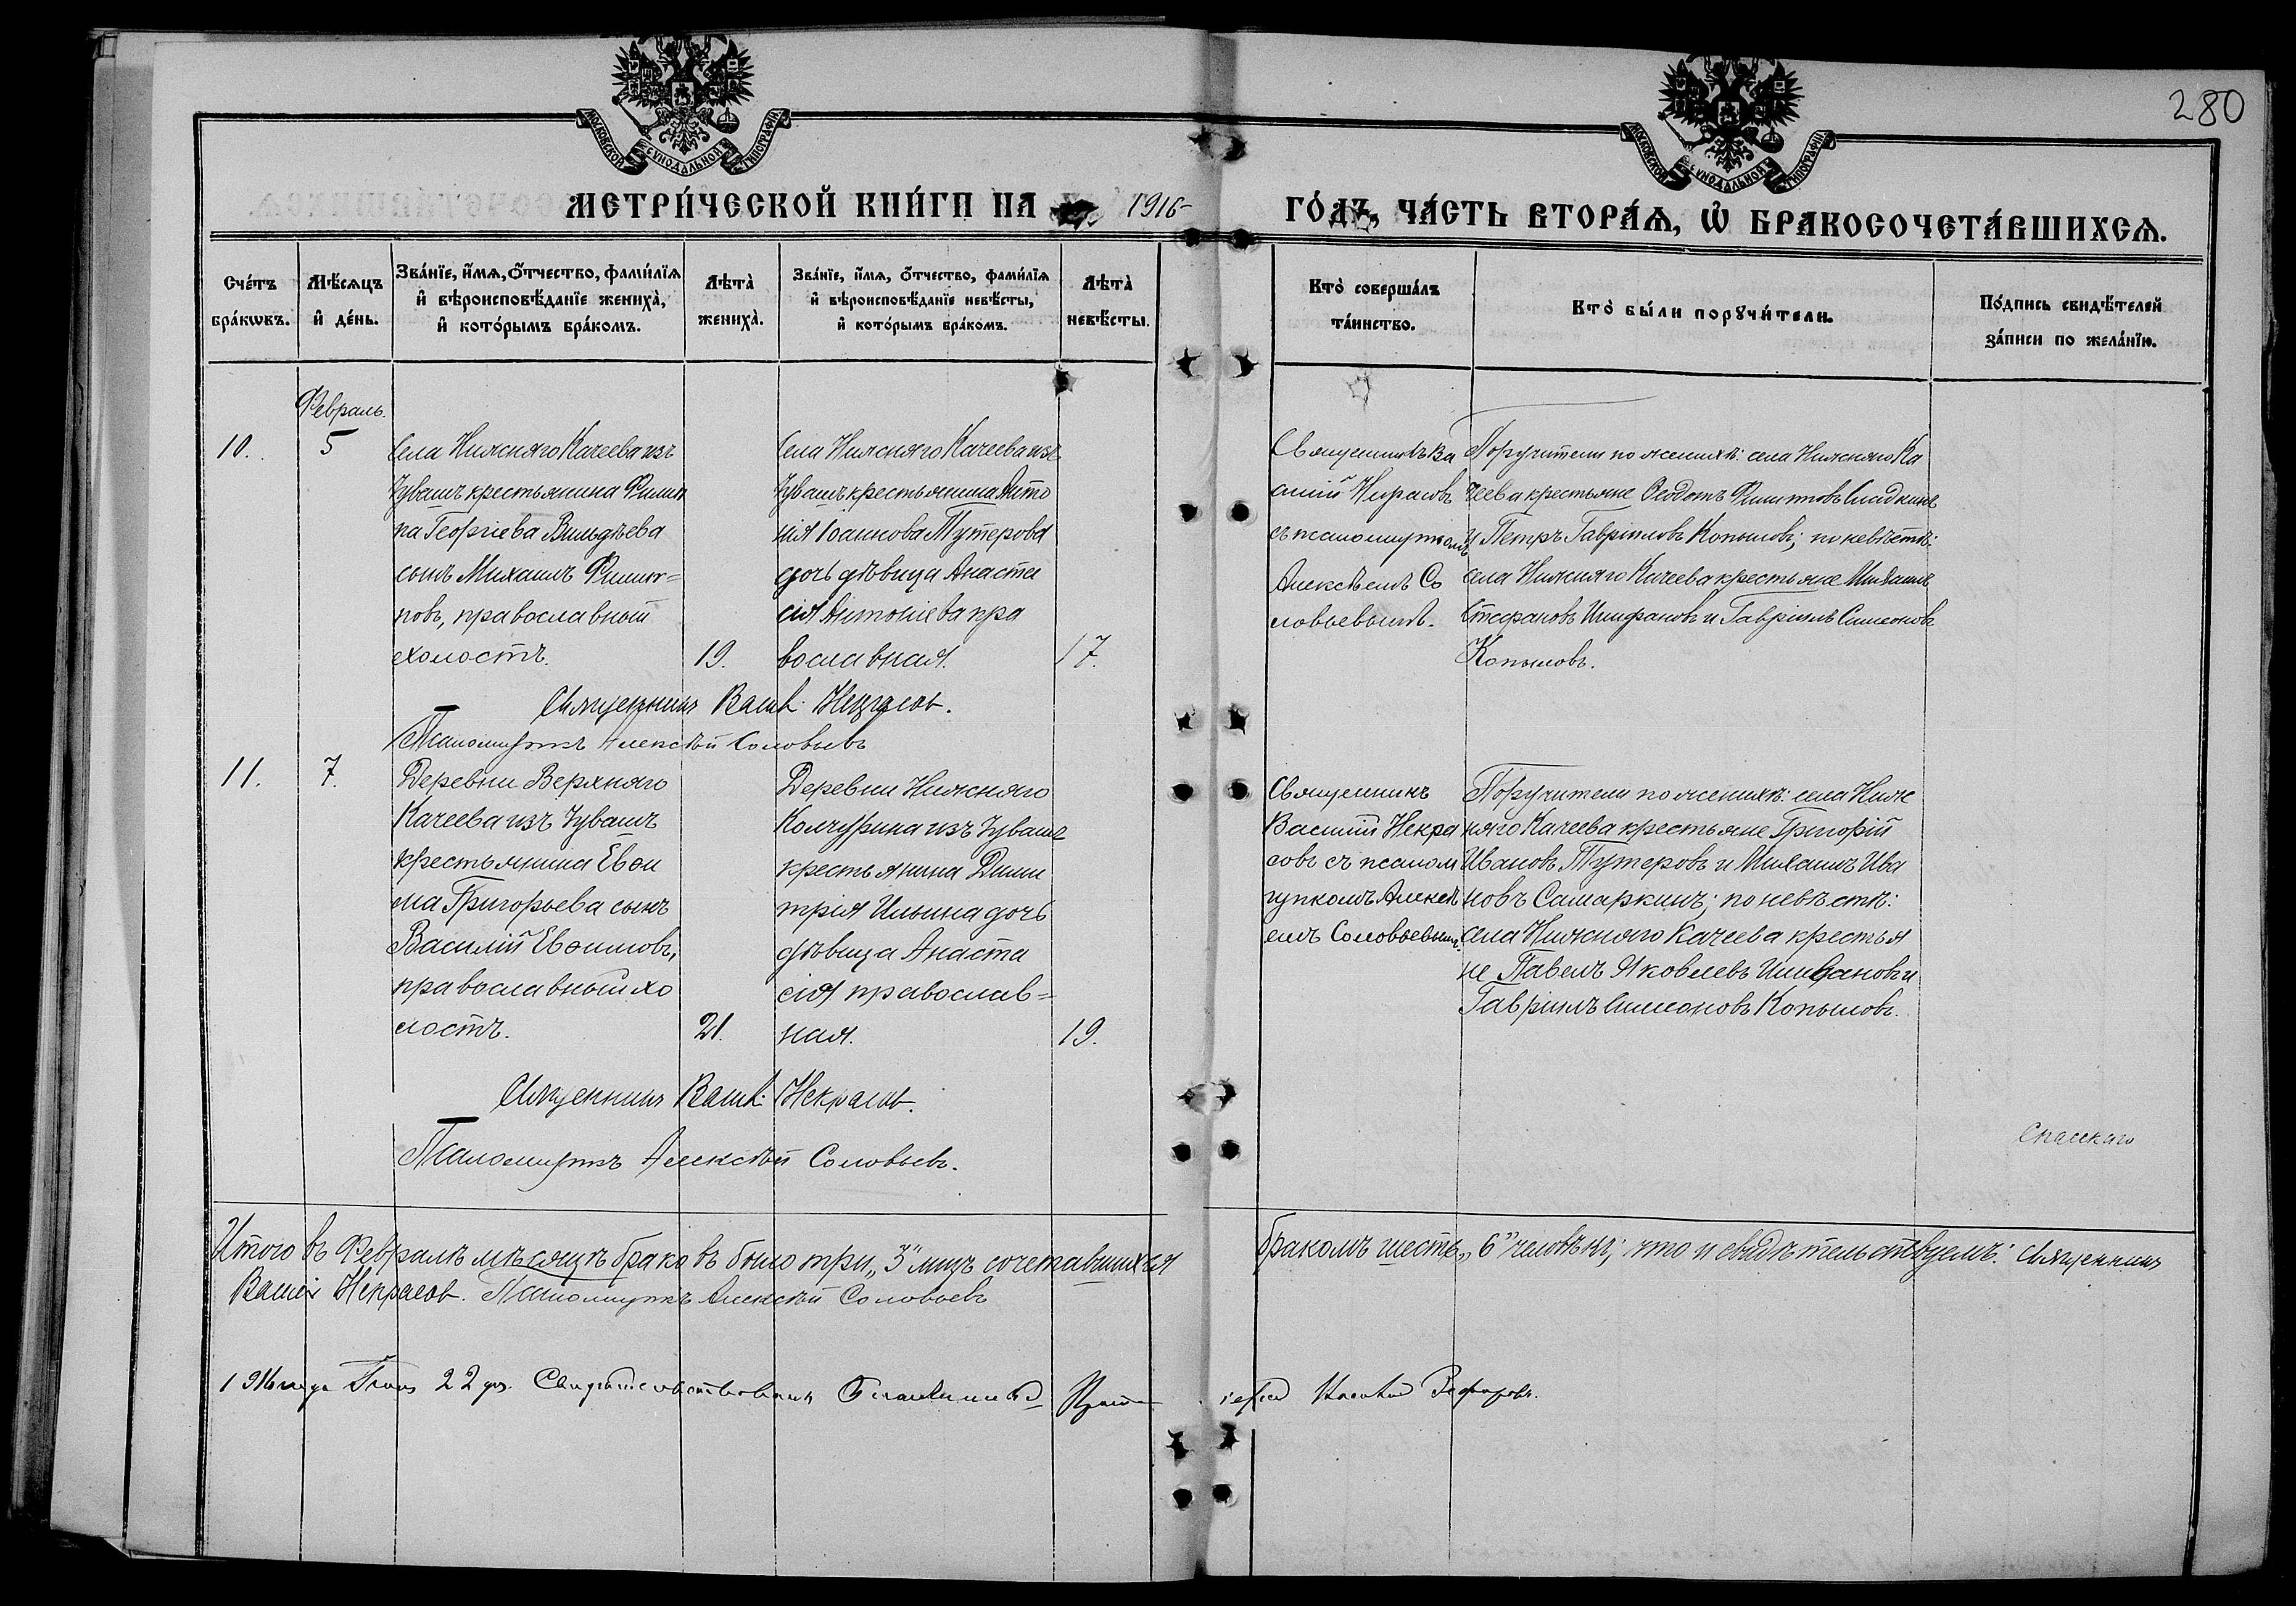 280
МОСКОВСКОЙ СѴНОДАЛЬНОЙ ТИПОГРАФІИ
МОСКОВСКОЙ СѴНОДАЛЬНОЙ ТИПОГРАФІИ
МЕТРИ́ЧЕСКОЙ КНИ́ГИ НА 1916
ГО́ДЪ, ЧА́СТЬ ВТОРА́Ѧ, Ѡ҆ БРАКОСОЧЕТА́ВШИХСѦ.
Сче́тъ
бра́кѡвъ.
Мѣ́сѧцъ
и҆ де́нь.
Зва́нїе, и҆́мѧ, ѻ҆́тчество, фами́лїѧ
и҆ вѣроисповѣ́данїе жениха̀,
и҆ кото́рымъ бра́комъ.
Лѣта̀
жениха̀.
Зва́нїе, и҆́мѧ, ѻ҆́тчество, фами́лїѧ
и҆ вѣроисповѣ́данїе невѣ́сты,
и҆ кото́рымъ бра́комъ.
Лѣта̀
невѣ́сты.
Кто̀ соверша́лъ
та́инство.
Кто̀ бы́ли порꙋчи́тели.
По́дпись свидѣ́телей
за́писи по жела́нїю.
Февраль.
10.
5
Села Нижняго Качеева изъ
Чувашъ крестьянина Филип
па Георгіева Вильдяева
сынъ Михаилъ Филип=
повъ, православный
холостъ.
19.
Села Нижняго Качеева изъ
Чувашъ крестьянина Анто
нія Іоаннова Тутерова
дочь дѣвица Анаста
сія Антоніева пра
вославная.
17.
Священникъ Ва
силій Некрасовъ
съ псаломщикомъ
Алексѣемъ Со
ловьевымъ.
Поручители по женихѣ: села Нижняго Ка
чеева крестьяне Ѳеодотъ Филипповъ Сладкинъ
и Петръ Гавріиловъ Копыловъ; по невѣстѣ:
села Нижняго Качеева крестьяне Михаилъ
Стефановъ и Гавріилъ Симеоновъ
Копыловъ.
Священникъ Васил. Некрасов.
Псаломщикъ Алексѣй Соловьевъ
11.
7.
Деревни Верхняго
Качеева изъ Чувашъ
крестьянина Евѳи
ма Григорьева сынъ
Василій Евѳимовъ,
православный хо
лостъ.
21.
Деревни Нижняго
Колчурина изъ Чувашъ
крестьянина Дими
трія Ильина дочь
дѣвица Анаста
сія православ=
ная.
19.
Священникъ
Василій Некра
совъ съ псалом
щикомъ Алексѣ
емъ Соловьевымъ.
Поручители по женихѣ: села Ниж
няго Качеева крестьяне Григорій
Ивановъ Тутеровъ и Михаилъ Ива
новъ Самаркинъ; по невѣстѣ:
села Нижняго Качеева крестья
не Павелъ Яковлевъ и
Гавріилъ Симеоновъ Копыловъ.
Священникъ Васил. Некрасов.
Псаломщикъ Алексѣй Соловьевъ.
Спасскаго
Итого въ Февралѣ мѣсяцѣ браковъ было три „3" лицъ сочетавшихся
бракомъ шесть „6" человѣкъ; что и свидѣтельствуемъ: Священникъ
Василій Некрасов. Псаломщикъ Алексѣй Соловьевъ
1916 года 22 дня. Свидѣтельствовалъ Благочинный Прото
іерей